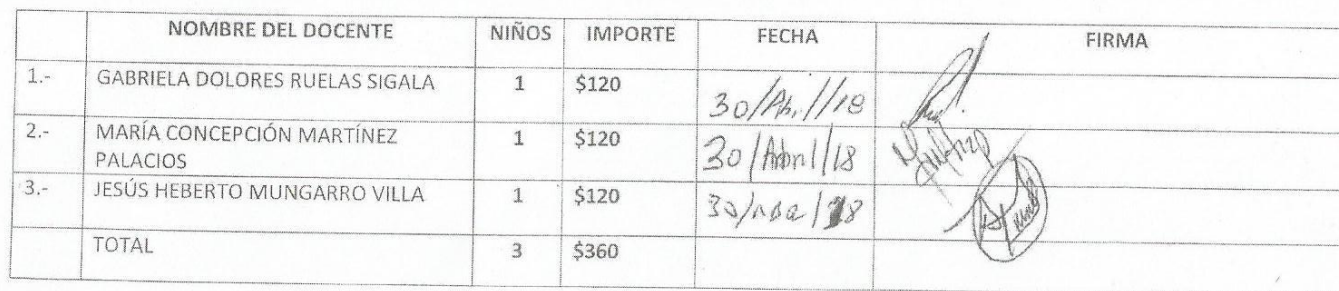 NOMBRE DEL DOCENTE NIÑOS IMPORTE FECHA FIRMA
1.- GABRIELA DOLORES RUELAS SIGALA 1 $120 30/Abril/18
2.- MARÍA CONCEPCIÓN MARTÍNEZ 1 $120 30/Abril/18
PALACIOS
3.- JESÚS HEBERTO MUNGARRO VILLA 1 $120
TOTAL 3 $360